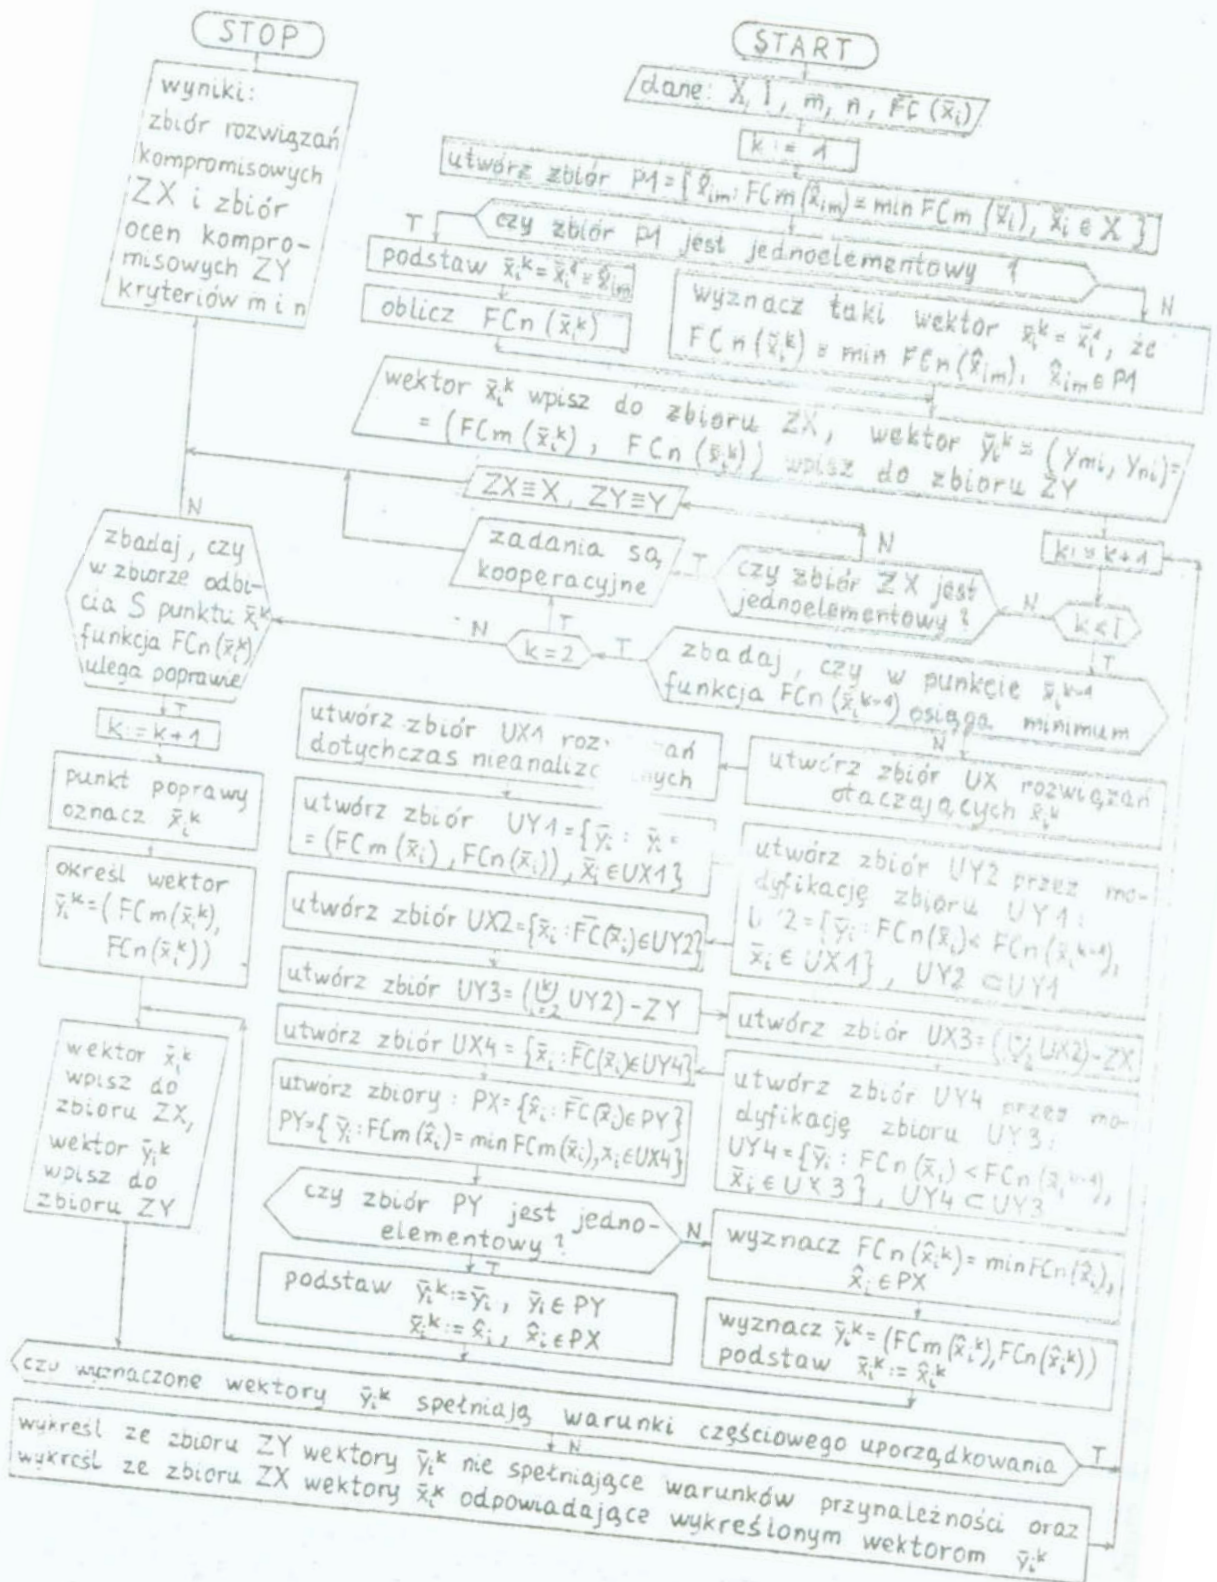 STOP
wyniki:
zbiór rozwiązań
kompromisowych
ZX i zbiór
ocen kompro-
misowych ZY
kryteriów m i n
START
dane: X, I, m, n, F̄C(x̄ᵢ)
k := 1
utwórz zbiór P1 = {x̂ᵢₘ: FCm(x̂ᵢₘ) = min FCm(x̄ᵢ), x̄ᵢ ∈ X}
czy zbiór P1 jest jednoelementowy ?
T
N
podstaw x̄ᵢᵏ = x̄ᵢ¹ = x̂ᵢₘ
oblicz FCn(x̄ᵢᵏ)
wyznacz taki wektor x̄ᵢᵏ = x̄ᵢ¹, że
FCn(x̄ᵢᵏ) = min FCn(x̂ᵢₘ), x̂ᵢₘ ∈ P1
wektor x̄ᵢᵏ wpisz do zbioru ZX, wektor ȳᵢᵏ = (yₘᵢ, yₙᵢ) =
= (FCm(x̄ᵢᵏ), FCn(x̄ᵢᵏ)) wpisz do zbioru ZY
ZX ≡ X, ZY ≡ Y
k := k+1
N
zadania są
kooperacyjne
T
czy zbiór ZX jest
jednoelementowy ?
N
k < I
T
N
zbadaj, czy
w zbiorze odbi-
cia S punktu x̄ᵢᵏ
funkcja FCn(x̄ᵢᵏ)
ulega poprawie
N
T
k = 2
T
zbadaj, czy w punkcie x̄ᵢᵏ⁻¹
funkcja FCn(x̄ᵢᵏ⁻¹) osiąga minimum
N
T
k := k+1
punkt poprawy
oznacz x̄ᵢᵏ
określ wektor
ȳᵢᵏ = (FCm(x̄ᵢᵏ),
FCn(x̄ᵢᵏ))
utwórz zbiór UX1
dotychczas
utwórz zbiór UX rozwiązań
otaczających x̄ᵢᵏ
utwórz zbiór UY1 = {ȳᵢ : ȳᵢ =
= (FCm(x̄ᵢ), FCn(x̄ᵢ)), x̄ᵢ ∈ UX1}
utwórz zbiór UY2 przez mo-
dyfikację zbioru UY1:
2 = {ȳᵢ : FCn(x̄ᵢ) < FCn(x̄ᵢᵏ⁻¹),
x̄ᵢ ∈ UX1}, UY2 ⊂ UY1
utwórz zbiór UX2 = {x̄ᵢ : F̄C(x̄ᵢ) ∈ UY2}
utwórz zbiór UY3 = (⋃ᵏᵢ₌₂ UY2) - ZY
utwórz zbiór UX3 = (⋃ UX2) - ZX
utwórz zbiór UX4 = {x̄ᵢ : F̄C(x̄ᵢ) ∈ UY4}
utwórz zbiór UY4 przez mo-
dyfikację zbioru UY3:
UY4 = {ȳᵢ : FCn(x̄ᵢ) < FCn(x̄ᵢᵏ⁻¹),
x̄ᵢ ∈ UX3}, UY4 ⊂ UY3
utwórz zbiory : PX = {x̂ᵢ : F̄C(x̄ᵢ) ∈ PY}
PY = {ȳᵢ : FCm(x̂ᵢ) = min FCm(x̄ᵢ), xᵢ ∈ UX4}
wektor x̄ᵢᵏ
wpisz do
zbioru ZX,
wektor ȳᵢᵏ
wpisz do
zbioru ZY
czy zbiór PY jest jedno-
elementowy ?
N
T
wyznacz FCn(x̂ᵢᵏ) = min FCn(x̂ᵢ),
x̂ᵢ ∈ PX
podstaw ȳᵢᵏ := ȳᵢ, ȳᵢ ∈ PY
x̄ᵢᵏ := x̂ᵢ, x̂ᵢ ∈ PX
wyznacz ȳᵢᵏ = (FCm(x̂ᵢᵏ), FCn(x̂ᵢᵏ))
podstaw x̄ᵢᵏ := x̂ᵢᵏ
czy wyznaczone wektory ȳᵢᵏ spełniają warunki częściowego uporządkowania
T
N
wykreśl ze zbioru ZY wektory ȳᵢᵏ nie spełniające warunków przynależności oraz
wykreśl ze zbioru ZX wektory x̄ᵢᵏ odpowiadające wykreślonym wektorom ȳᵢᵏ